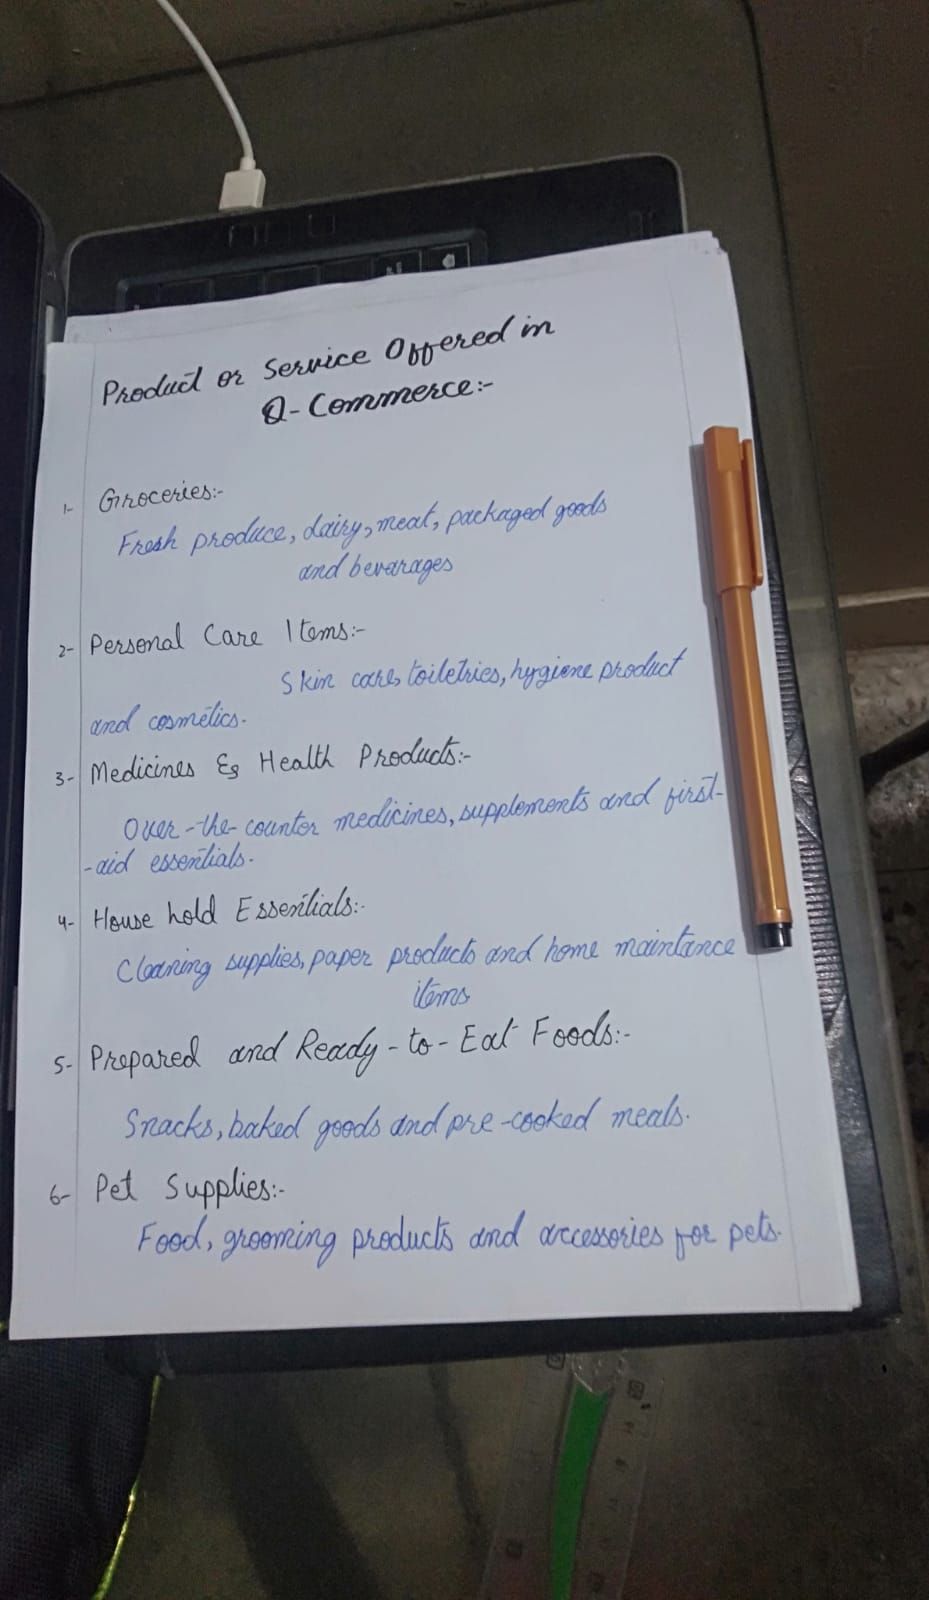 Product or Service Offered in
Q-Commerce:-
1- Groceries:-
Fresh produce, dairy, meat, packaged goods
and bevarages
2- Personal Care Items:-
Skin care, toiletries, hygiene product
and cosmetics.
3- Medicines & Health Products:-
Over-the-counter medicines, supplements and first-
-aid essentials.
4- House hold Essentials:-
Cleaning supplies, paper products and home maintance
items
5- Prepared and Ready-to-Eat Foods:-
Snacks, baked goods and pre-cooked meals.
6- Pet Supplies:-
Food, grooming products and accessories for pets.